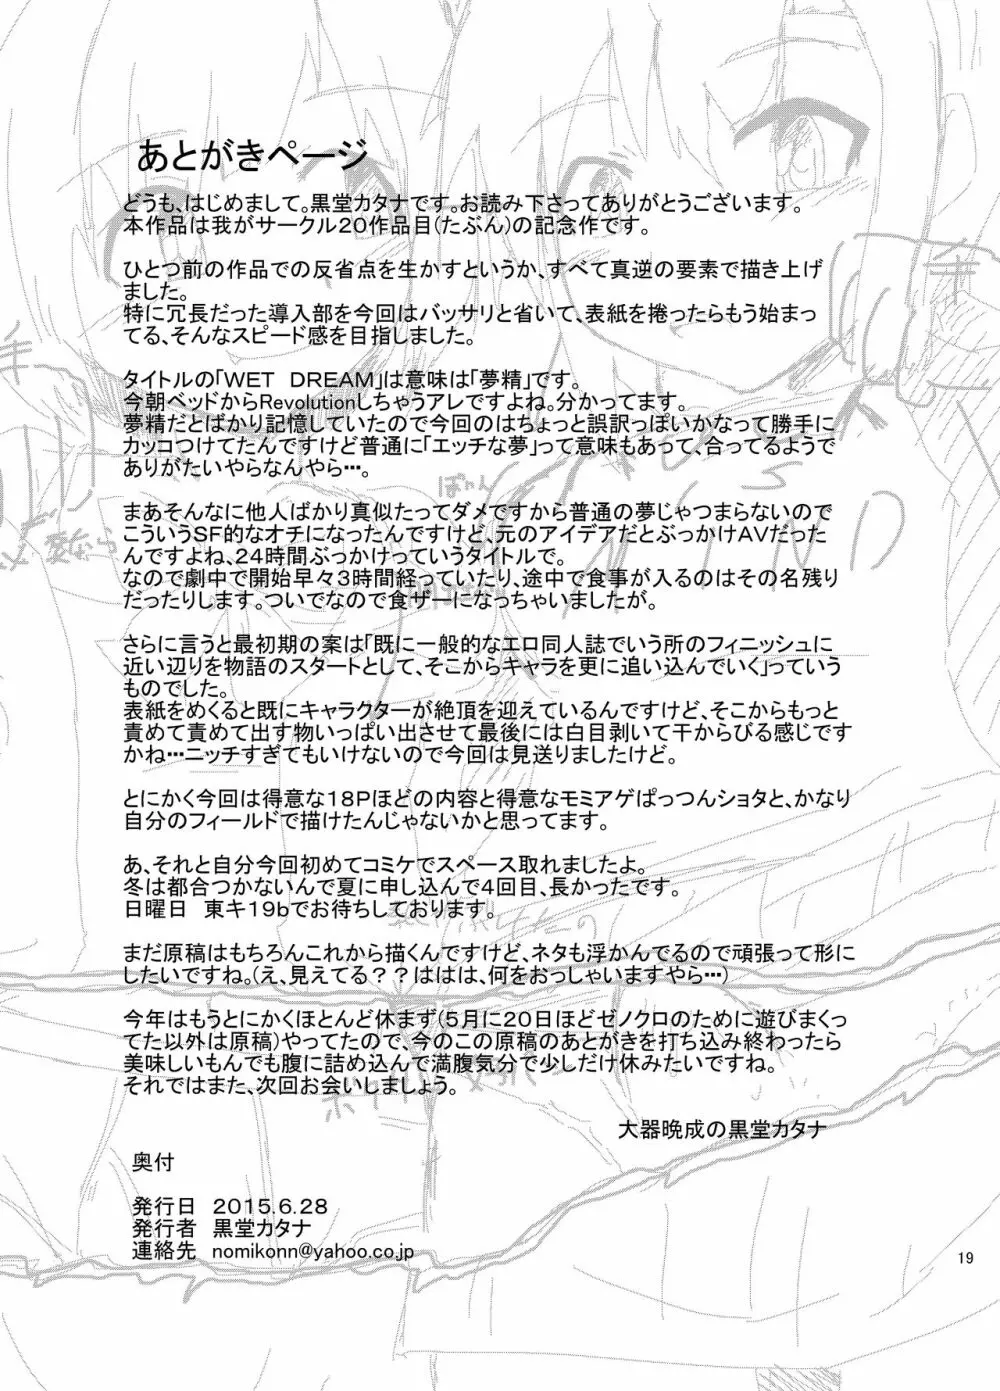 あとがきページ
どうも、はじめまして。黒堂カタナです。お読み下さってありがとうございます。
本作品は我がサークル２０作品目(たぶん)の記念作です。
ひとつ前の作品での反省点を生かすというか、すべて真逆の要素で描き上げ
ました。
特に冗長だった導入部を今回はバッサリと省いて、表紙を捲ったらもう始まっ
てる、そんなスピード感を目指しました。
タイトルの「WET　DREAM」は意味は「夢精」です。
今朝ベッドからRevolutionしちゃうアレですよね。分かってます。
夢精だとばかり記憶していたので今回のはちょっと誤訳っぽいかなって勝手に
カッコつけてたんですけど普通に「エッチな夢」って意味もあって、合ってるようで
ありがたいやらなんやら…。
まあそんなに他人ばかり真似たってダメですから普通の夢じゃつまらないので
こういうＳＦ的なオチになったんですけど、元のアイデアだとぶっかけＡＶだった
んですよね、２４時間ぶっかけっていうタイトルで。
なので劇中で開始早々３時間経っていたり、途中で食事が入るのはその名残り
だったりします。ついでなので食ザーになっちゃいましたが。
さらに言うと最初期の案は「既に一般的なエロ同人誌でいう所のフィニッシュに
近い辺りを物語のスタートとして、そこからキャラを更に追い込んでいく」っていう
ものでした。
表紙をめくると既にキャラクターが絶頂を迎えているんですけど、そこからもっと
責めて責めて出す物いっぱい出させて最後には白目剥いて干からびる感じです
かね…ニッチすぎてもいけないので今回は見送りましたけど。
とにかく今回は得意な１８Ｐほどの内容と得意なモミアゲぱっつんショタと、かなり
自分のフィールドで描けたんじゃないかと思ってます。
あ、それと自分今回初めてコミケでスペース取れましたよ。
冬は都合つかないんで夏に申し込んで４回目、長かったです。
日曜日　東キ１９ｂでお待ちしております。
まだ原稿はもちろんこれから描くんですけど、ネタも浮かんでるので頑張って形に
したいですね。(え、見えてる？？ははは、何をおっしゃいますやら…)
今年はもうとにかくほとんど休まず(５月に２０日ほどゼノクロのために遊びまくっ
てた以外は原稿)やってたので、今のこの原稿のあとがきを打ち込み終わったら
美味しいもんでも腹に詰め込んで満腹気分で少しだけ休みたいですね。
それではまた、次回お会いしましょう。
大器晩成の黒堂カタナ
奥付
発行日　２０１５．６．２８
発行者　黒堂カタナ
連絡先　nomikonn@yahoo.co.jp
19